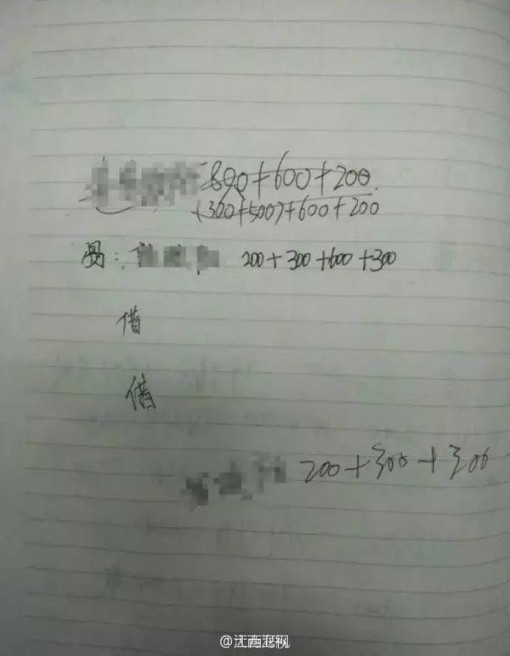 800+600+200
(300+500)+600+200
200+300+600+300
借
借
200+300+300